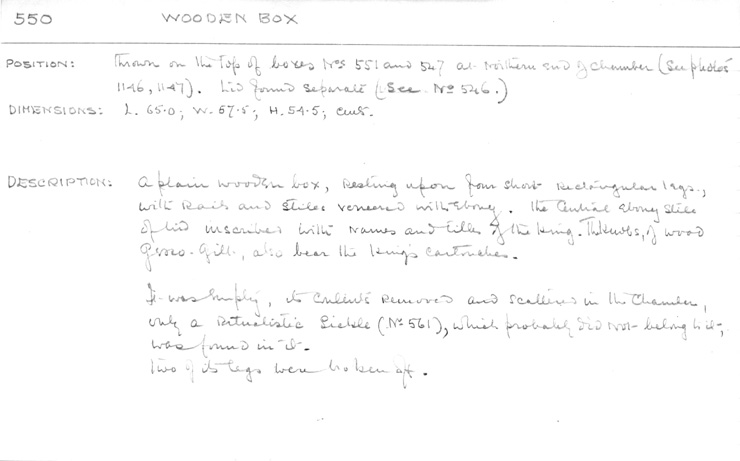 550 WOODEN BOX
POSITION: Thrown on the top of boxes Nos 551 and 547 at Northern end of chamber (See photos
1146, 1147). Lid found separate (See No 546.)
DIMENSIONS: L. 65.0; W. 57.5; H. 54.5; cms.
DESCRIPTION: A plain wooden box, resting upon four short rectangular legs,
with rails and stiles veneered with ebony. The central ebony stile
of lid inscribed with names and titles of the King. The knobs, of wood
gesso-gilt, also bear the King's cartouches.
It was empty, its contents removed and scattered in the chamber,
only a ritualistic sickle (No 561), which probably did not belong to it,
was found in it.
Two of its legs were broken off.